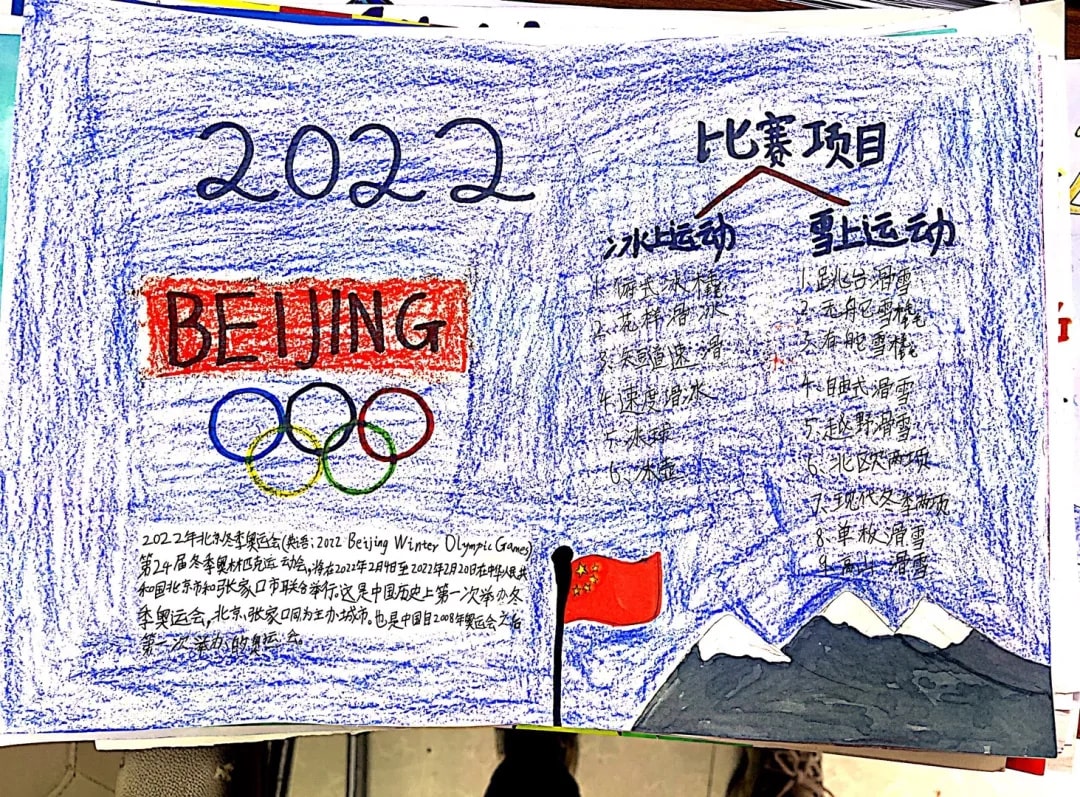 2022
BEIJING
2022年北京冬季奥运会(英语:2022 Beijing Winter Olympic Games)
第24届冬季奥林匹克运动会,将在2022年2月4日至2022年2月20日在中华人民共
和国北京市和张家口市联合举行.这是中国历史上第一次举办冬
季奥运会,北京、张家口同为主办城市。也是中国自2008年奥运会之后
第一次举办的奥运会
比赛项目
冰上运动
1.俯式冰橇
2.花样滑冰
3.短道速滑
4.速度滑冰
5.冰球
6.冰壶
雪上运动
1.跳台滑雪
2.无舵雪橇
3.有舵雪橇
4.自由式滑雪
5.越野滑雪
6.北欧两项
7.现代冬季两项
8.单板滑雪
9.高山滑雪